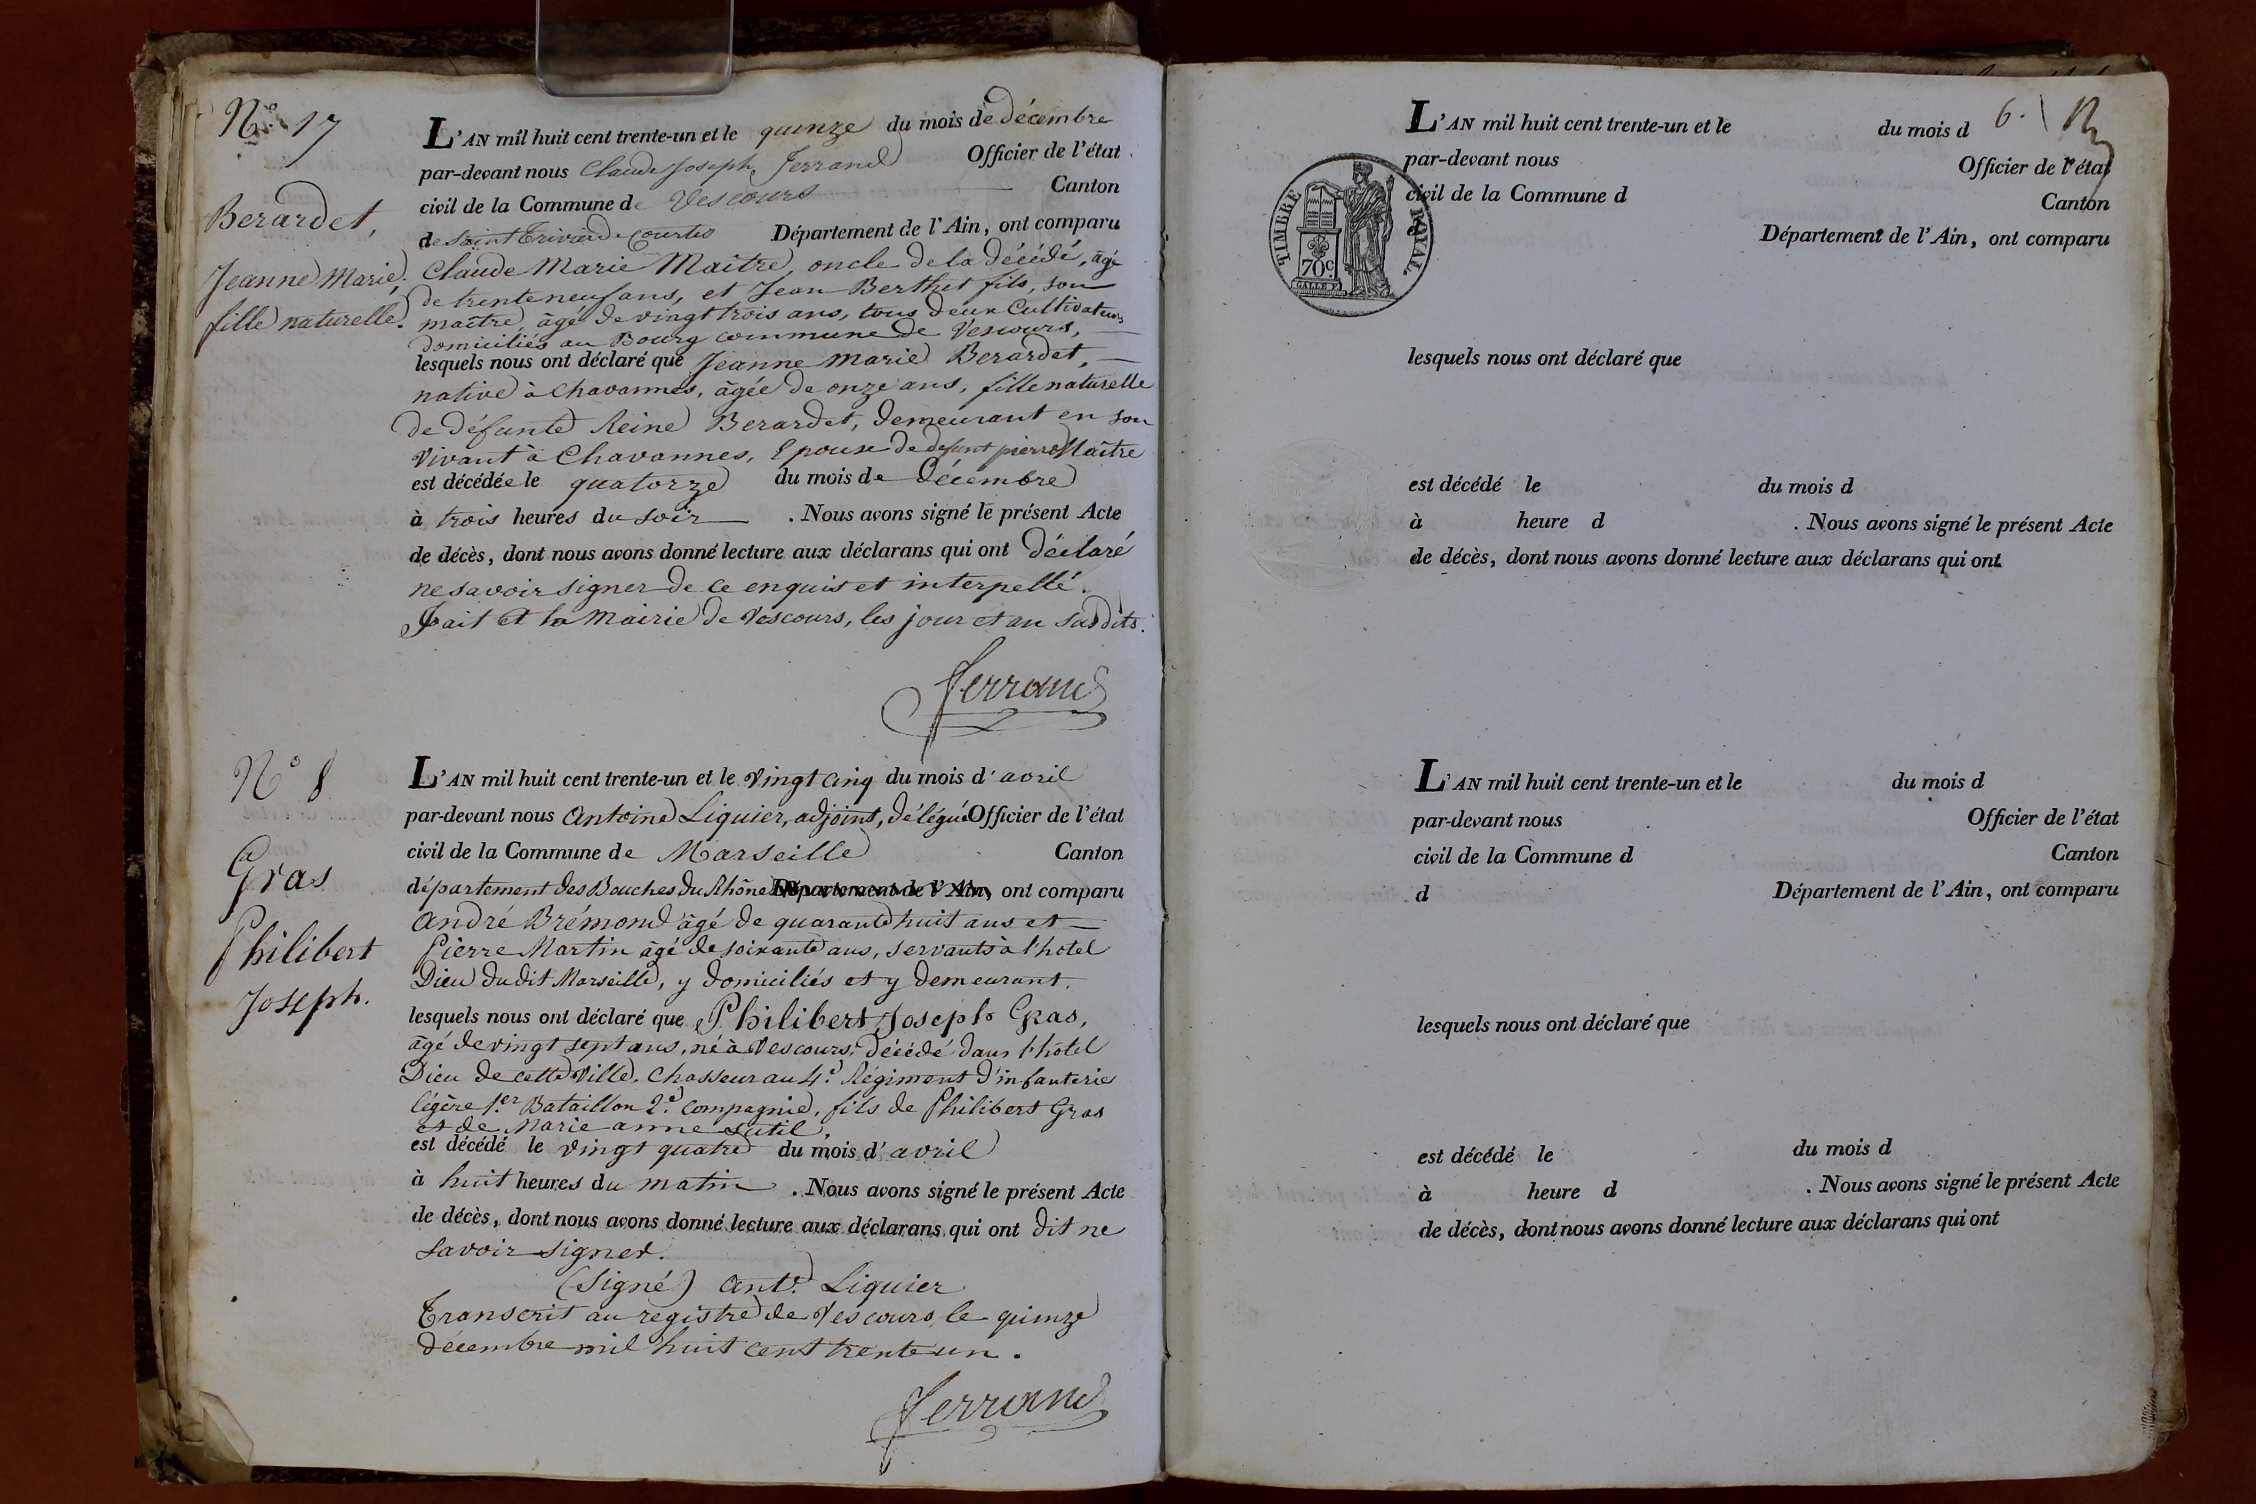 N.° 17
Berardet,
Jeanne Marie,
fille naturelle.
L'AN mil huit cent trente-un et le quinze du mois de décembre
par-devant nous Claude Joseph Ferrand Officier de l'état
civil de la Commune de Vescours Canton
de Saint Trivier de Courtes Département de l'Ain, ont comparu
Claude Marie Maître, oncle de la décédé, âgé
de trente neuf ans, et Jean Berthet fils, son
maître, âgé de vingt trois ans, tous deux Cultivateurs
domiciliés au Bourg commune de Vescours,
lesquels nous ont déclaré que Jeanne Marie Berardet,
native à Chavannes, âgée de onze ans, fille naturelle
de défunte Reine Berardet, demeurant en son
vivant à Chavannes, Epouse de defunt pierre Maître
est décédée le quatorze du mois de Décembre
à trois heures du soir . Nous avons signé le présent Acte
de décès, dont nous avons donné lecture aux déclarans qui ont déclaré
ne savoir signer de ce enquis et interpellé.
Fait et la Mairie de Vescours, les jour et an susdits.
Ferrand
N° 8
Gras
Philibert
Joseph.
L'AN mil huit cent trente-un et le vingt cinq du mois d'avril
par-devant nous Antoine Liquier, adjoint, délégué Officier de l'état
civil de la Commune de Marseille Canton
département des Bouches du Rhône Département de l'Ain, ont comparu
André Brémond âgé de quarante huit ans et
Pierre Martin âgé de soixante ans, servants à l'hôtel
Dieu du dit Marseille, y domiciliés et y demeurant.
lesquels nous ont déclaré que Philibert Joseph Gras,
âgé de vingt sept ans, né à Vescours, décédé dans l'hôtel
Dieu de cette Ville, Chasseur au 4e Régiment d'infanterie
légère 1.er Bataillon 2.e compagnie, fils de Philibert Gras
et de Marie anne Sutil,
est décédé le vingt quatre du mois d'avril
à huit heures du matin . Nous avons signé le présent Acte
de décès, dont nous avons donné lecture aux déclarans qui ont dit ne
savoir signer.
(signé) ant.e Liquier
Transcrit au registre de Vescours, le quinze
décembre mil huit cent trente un.
Ferrand
6.
L'AN mil huit cent trente-un et le du mois d
par-devant nous Officier de l'état
civil de la Commune d Canton
d Département de l'Ain, ont comparu
TIMBRE ROYAL
70 c.
lesquels nous ont déclaré que
est décédé le du mois d
à heure d . Nous avons signé le présent Acte
de décès, dont nous avons donné lecture aux déclarans qui ont
L'AN mil huit cent trente-un et le du mois d
par-devant nous Officier de l'état
civil de la Commune d Canton
d Département de l'Ain, ont comparu
lesquels nous ont déclaré que
est décédé le du mois d
à heure d . Nous avons signé le présent Acte
de décès, dont nous avons donné lecture aux déclarans qui ont